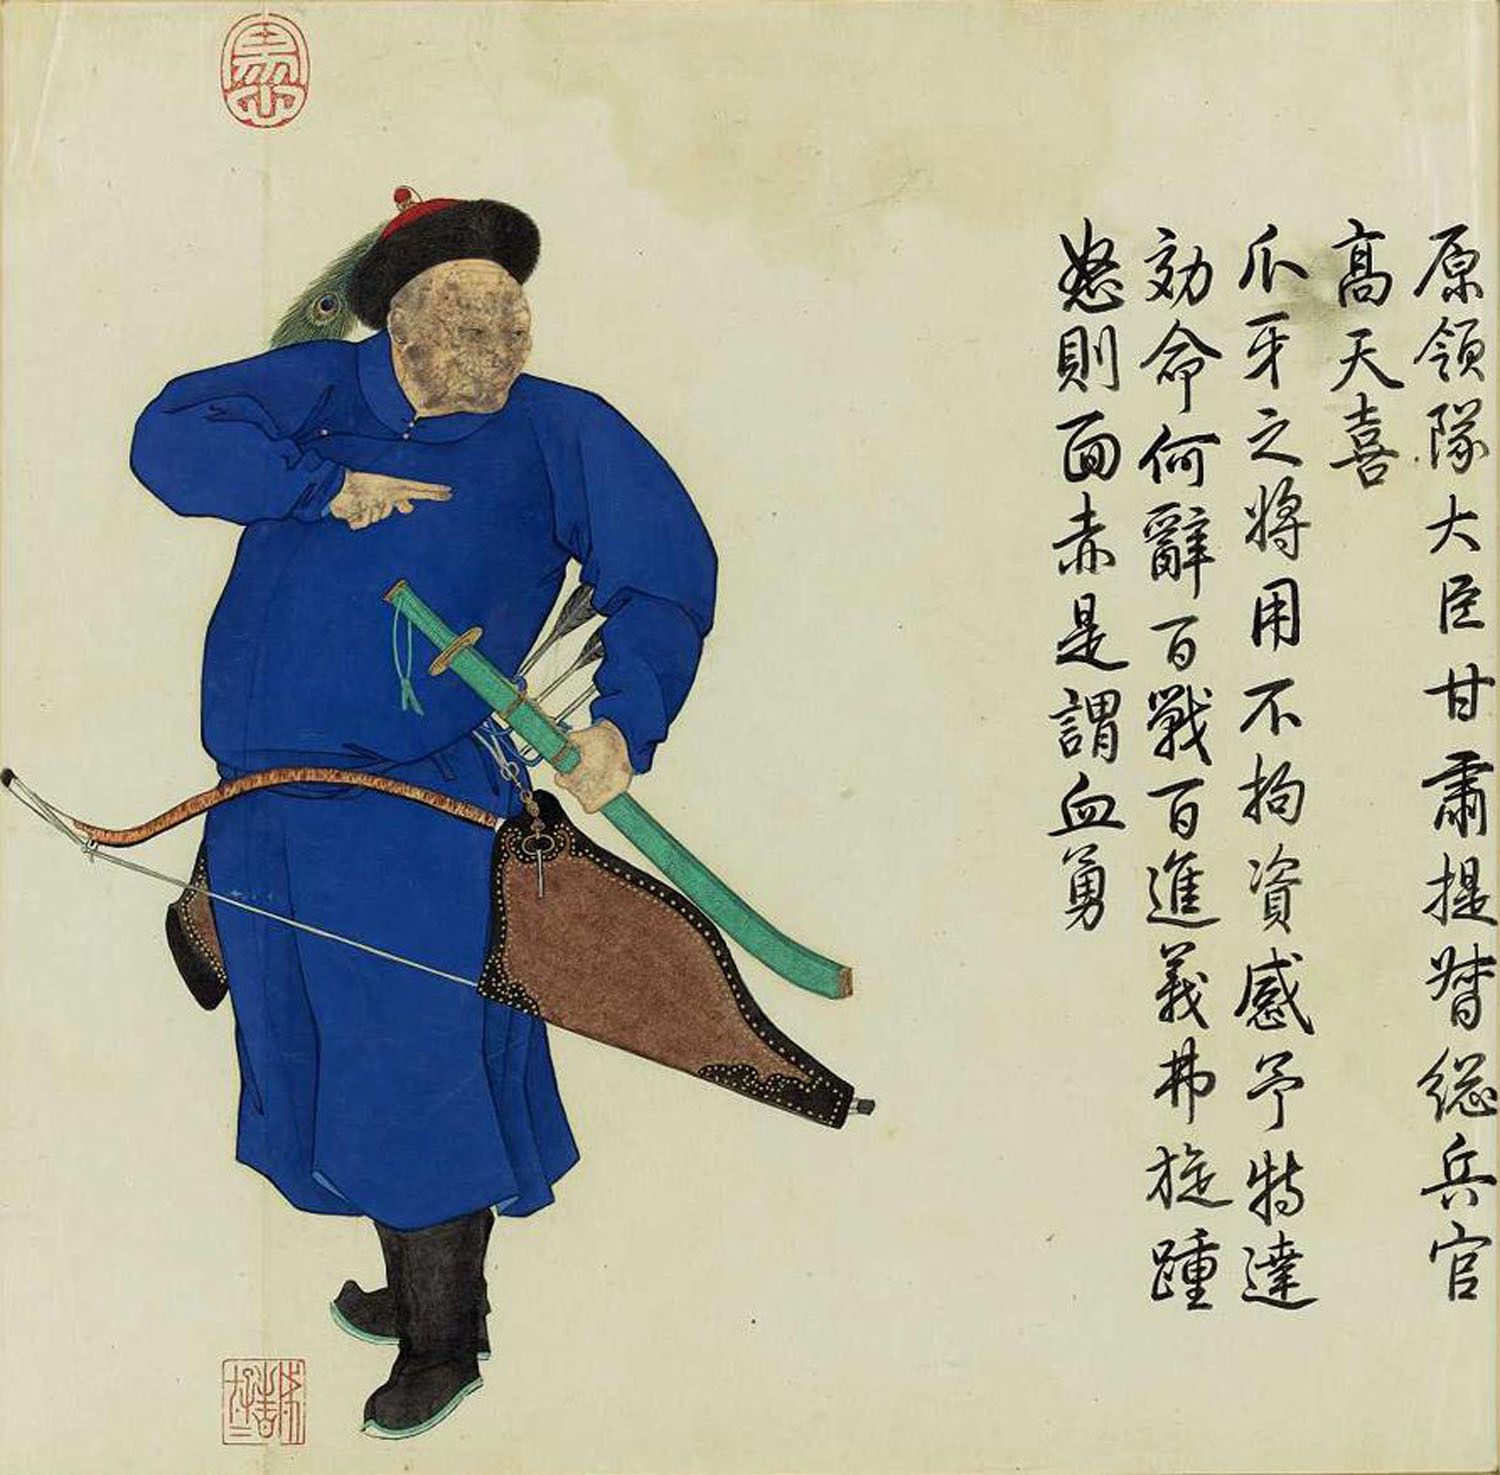 原領隊大臣甘肅提督緫兵官
髙天喜
爪牙之將用不拘資感予特達
効命何辭百戰百進義弗旋踵
怒則面赤是謂血勇